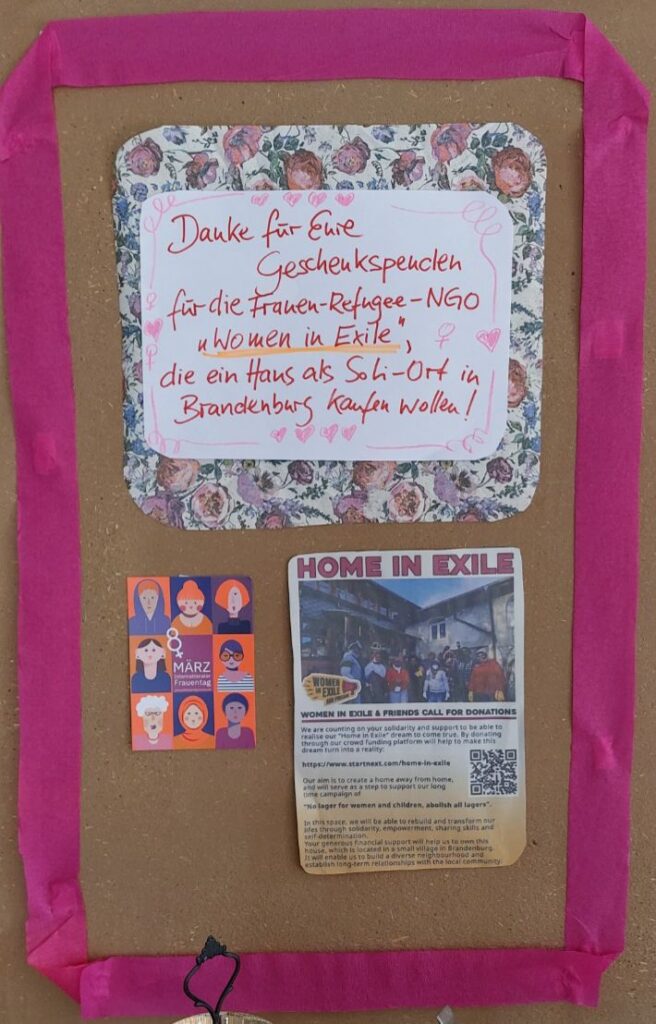 Danke für Eure
Geschenkspenden
für die Frauen-Refugee-NGO
„Women in Exile",
die ein Haus als Soli-Ort in
Brandenburg kaufen wollen!
8
MÄRZ
Internationaler
Frauentag
HOME IN EXILE
WOMEN
IN EXILE
AND FRIENDS
WOMEN IN EXILE & FRIENDS CALL FOR DONATIONS
We are counting on your solidarity and support to be able to
realise our "Home in Exile" dream to come true. By donating
through our crowd funding platform will help to make this
dream turn into a reality:
https://www.startnext.com/home-in-exile
Our aim is to create a home away from home,
and will serve as a step to support our long
time campaign of
"No lager for women and children, abolish all lagers".
In this space, we will be able to rebuild and transform our
lifes through solidarity, empowerment, sharing skills and
self-determination.
Your generous financial support will help us to own this
house, which is located in a small village in Brandenburg.
It will enable us to build a diverse neighbourhood and
establish long-term relationships with the local community.